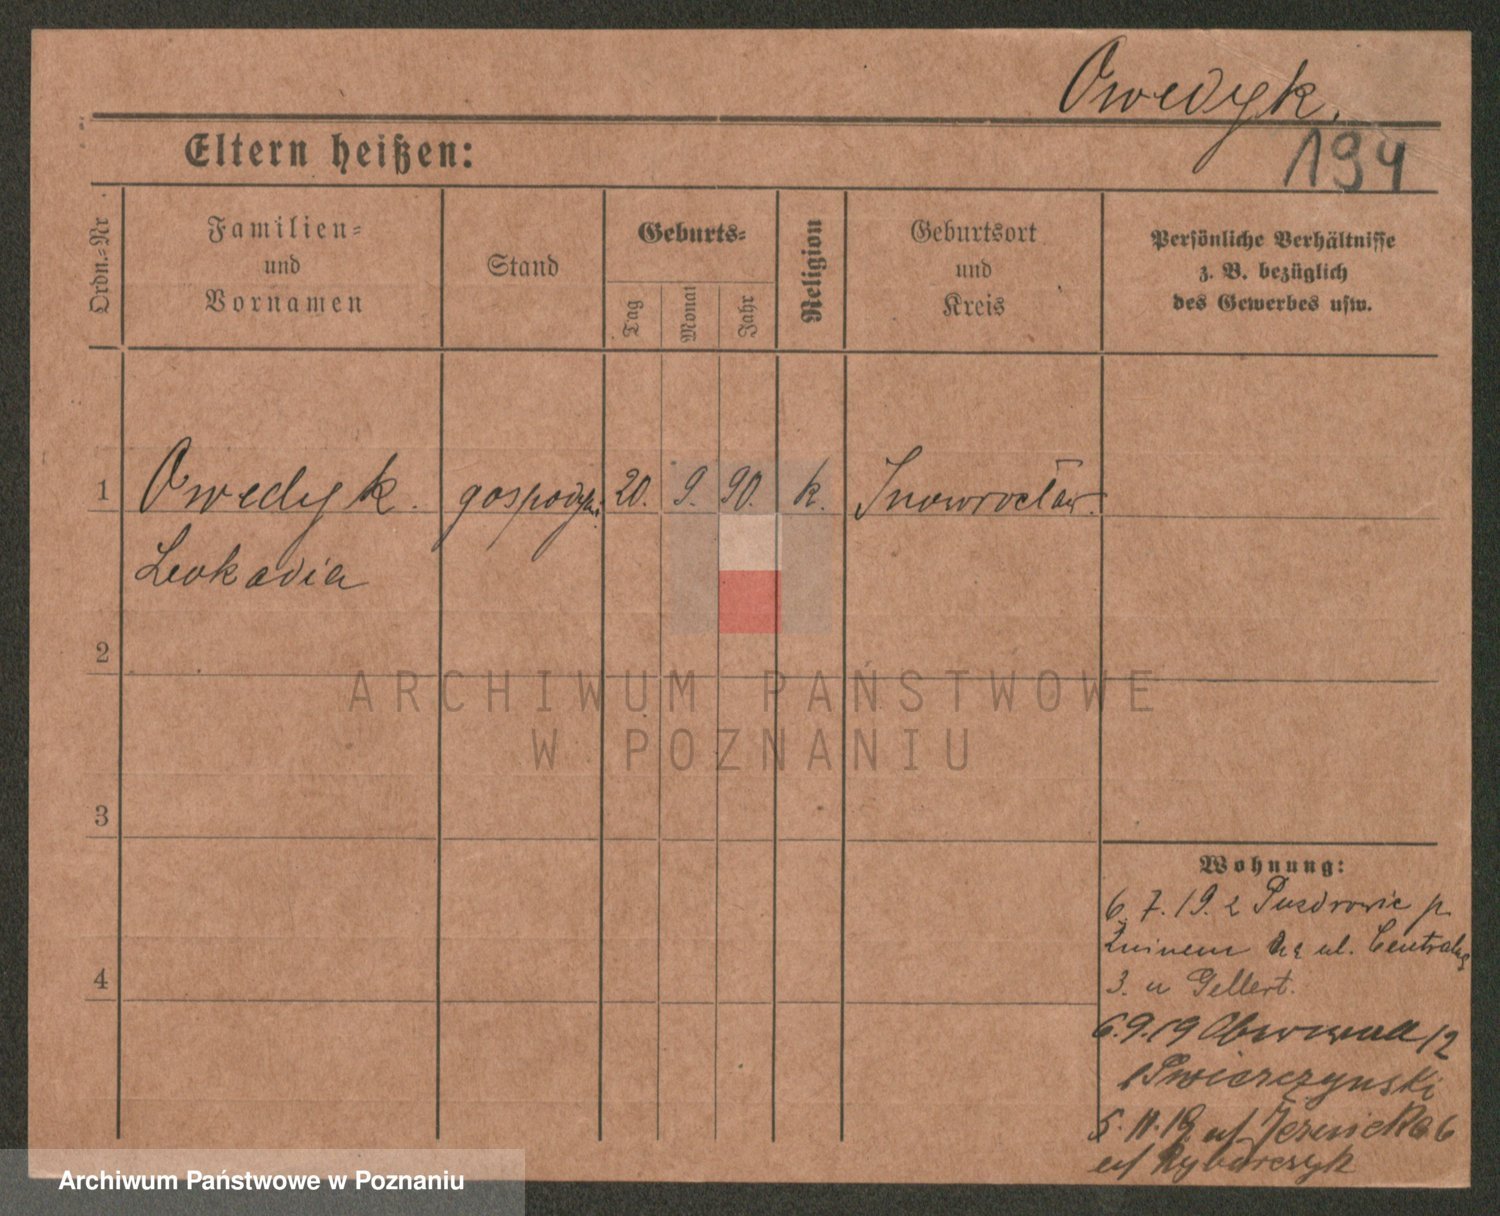 Owedyk.
194
Eltern heißen:
Ordn.-Nr.
Familien-
und
Vornamen
Stand
Geburts-
Tag
Monat
Jahr
Religion
Geburtsort
und
Kreis
Persönliche Verhältnisse
z. B. bezüglich
des Gewerbes usw.
1 Owedyk. gospodyni 20. 9. 90. k. Inowrocław.
Leokadia
2
ARCHIWUM PAŃSTWOWE
W POZNANIU
3
Wohnung:
6. 7. 19. z p.
Żninem ul. Centralną
3. u Gellert.
4
6.9.19 12
Swierczynski
5.11.19 ul. Jeżycka 6
Rybarczyk
Archiwum Państwowe w Poznaniu